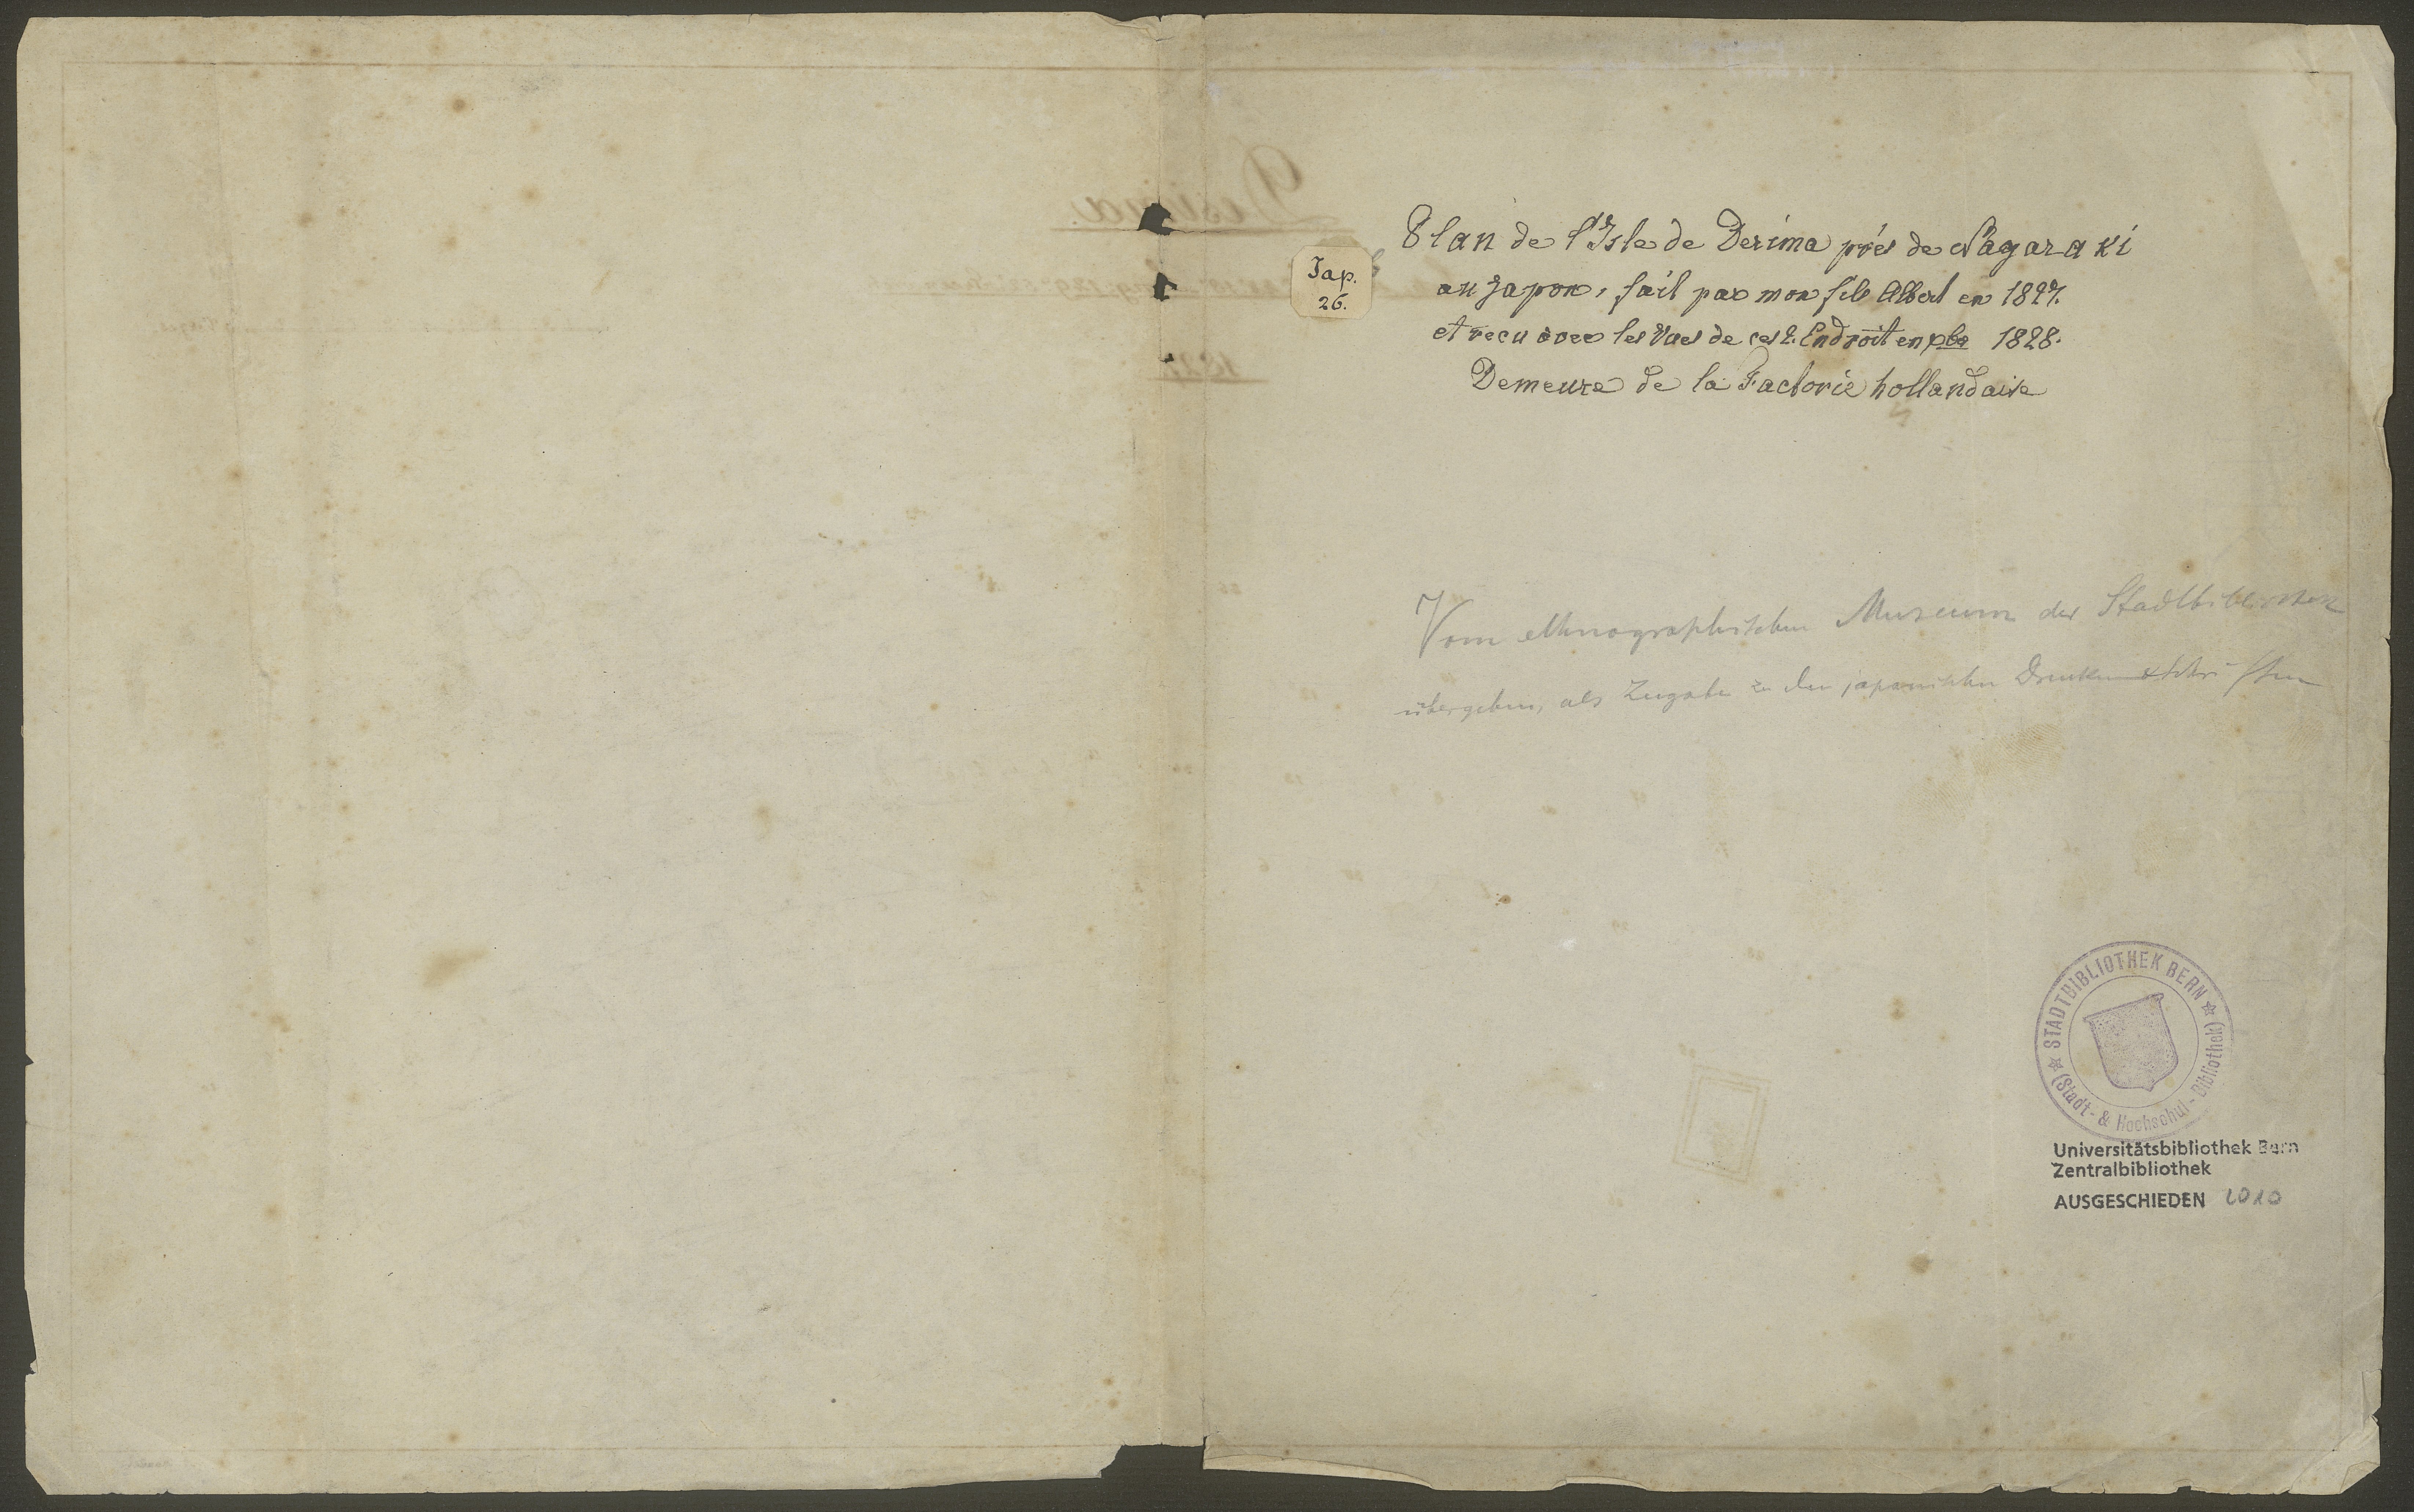 Desima.
1827.
Jap.
26.
Plan de l'Isle de Desima près de Nagasaki
au Japon, fait par mon fils Albert en 1827.
et recu avec les Vues de ces 2. Endroit en xbre 1828.
Demeure de la Factorie hollandaise
Vom ethnographischen Museum der Stadtbibliothek
übergeben, als Zugabe zu den japanischen Drucken & Schriften
STADTBIBLIOTHEK BERN
(Stadt- & Hochschul-Bibliothek)
Universitätsbibliothek Bern
Zentralbibliothek
AUSGESCHIEDEN 2010